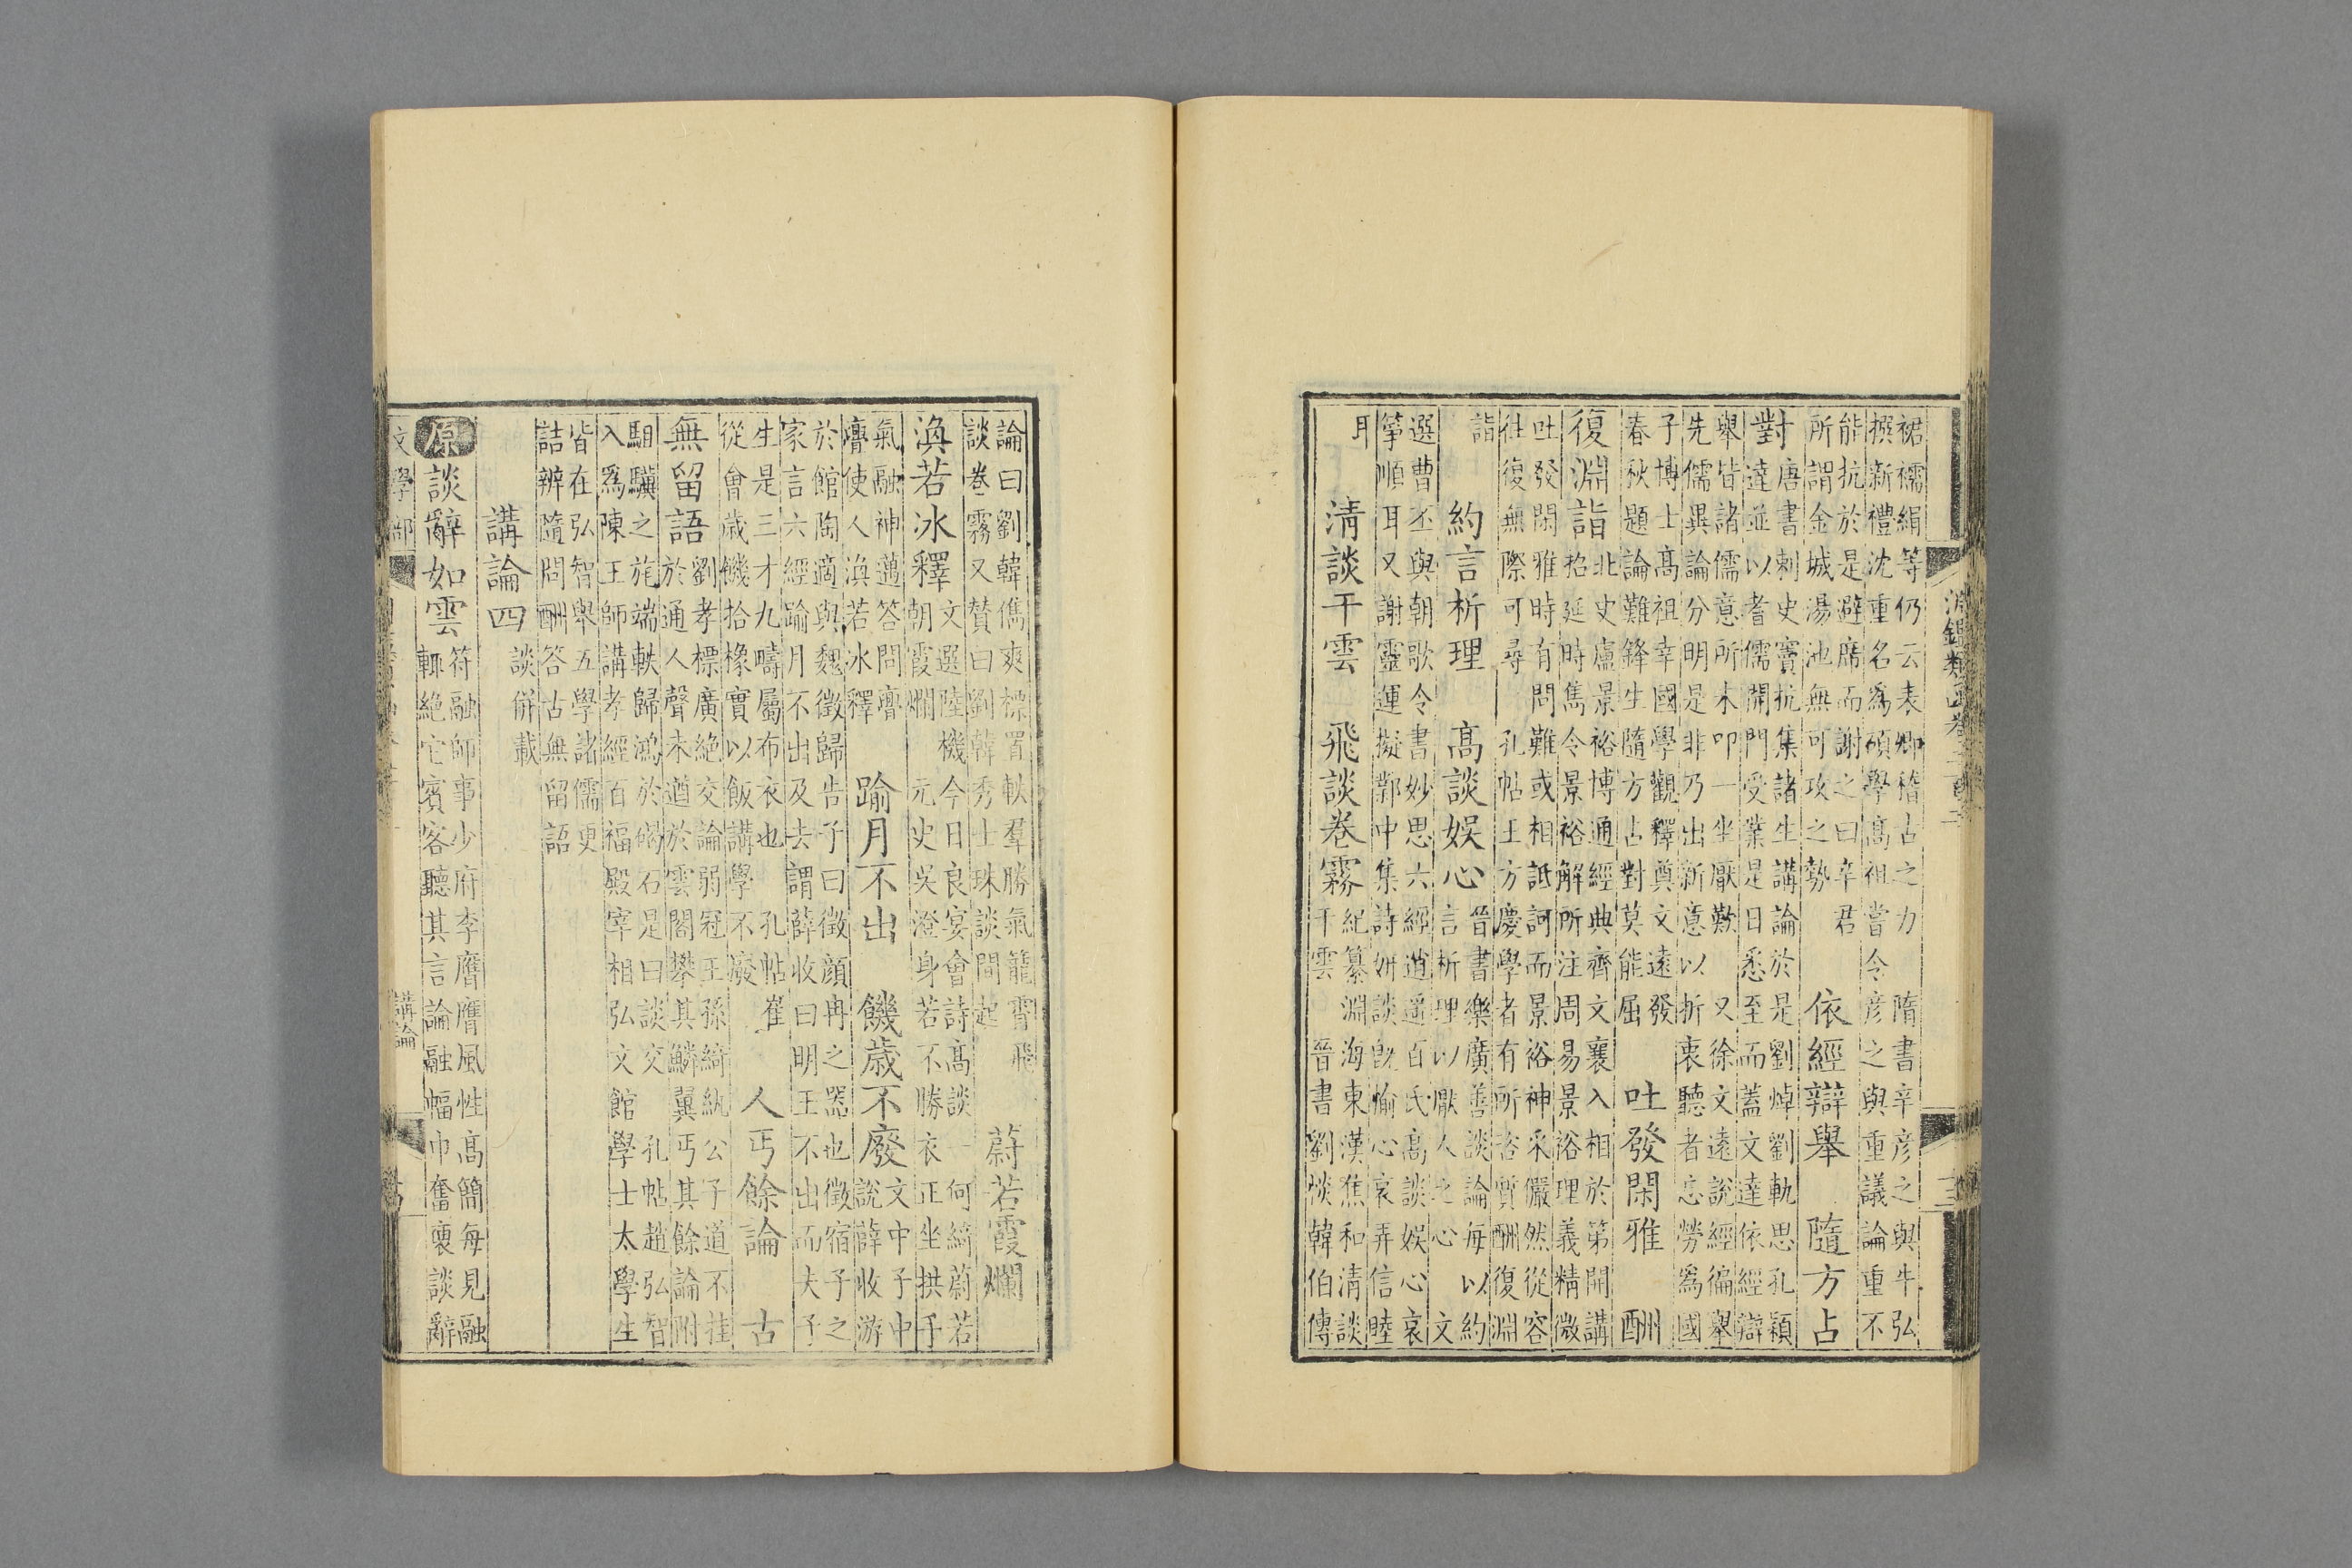 淵鑑類函卷二百二
三
裙襦絹等仍云表卿稽古之力 隋書辛彥之與牛弘
撰新禮沈重名為碩學高祖嘗令彥之與重議論重不
能抗於是避席而謝之曰辛君
所謂金城湯池無可攻之勢
依經辯舉 隨方占
對
唐書刺史竇抗集諸生講論於是劉焯劉軌思孔穎
達並以耆儒開門受業是日悉至而蓋文達依經辯
舉皆諸儒意所未叩一坐厭歎 又徐文遠說經徧舉
先儒異論分明是非乃出新意以折衷聽者忘勞爲國
子博士高祖幸國學觀釋奠文遠發
春秋題論難鋒生隨方占對莫能屈
吐發閑雅 酬
復淵詣
北史盧景裕博通經典齊文襄入相於第開講
招延時雋令景裕解所注周易景裕理義精微
吐發閑雅時有問難或相詆訶而景裕神采儼然從容
往復無際可尋 孔帖王方慶學者有所咨質酬復淵
詣
約言析理 高談娛心
晉書樂廣善談論每以約
言析理以厭人之心 文
選曹丕與朝歌令書妙思六經逍遙百氏高談娛心哀
箏順耳又謝靈運擬鄴中集詩妍談旣愉心哀弄信睦
耳
清談干雲 飛談卷霧
紀纂淵海東漢焦和清談
干雲 晉書劉惔韓伯傳
論曰劉韓儁爽標置軼羣勝氣籠霄飛
談卷霧又贊曰劉韓秀士珠談間起
蔚若霞爛
渙若冰釋
文選陸機今日良宴會詩高談一何綺蔚若
朝霞爛 元史吳澄身若不勝衣正坐拱手
氣融神邁答問亹
亹使人渙若冰釋
踰月不出 饑歲不廢
文中子中
說薛收游
於館陶適與魏徵歸告子曰徵顏冉之器也徵宿子之
家言六經踰月不出及去謂薛收曰明王不出而夫子
生是三才九疇屬布衣也 孔帖崔
從會歲饑拾橡實以飯講學不廢
人丐餘論 古
無留語
劉孝標廣絕交論弱冠王孫綺紈公子道不挂
於通人聲未遒於雲閣攀其鱗翼丐其餘論附
駔驥之旄端軼歸鴻於碣石是曰談交 孔帖趙弘智
入爲陳王師講孝經百福殿宰相弘文館學士太學生
皆在弘智舉五學諸儒更
詰辨隨問酬答古無留語
講論四 談併載
原
談辭如雲
符融師事少府李膺膺風性高簡每見融
輒絕它賓客聽其言論融幅巾奮裒談辭
文學部
講論